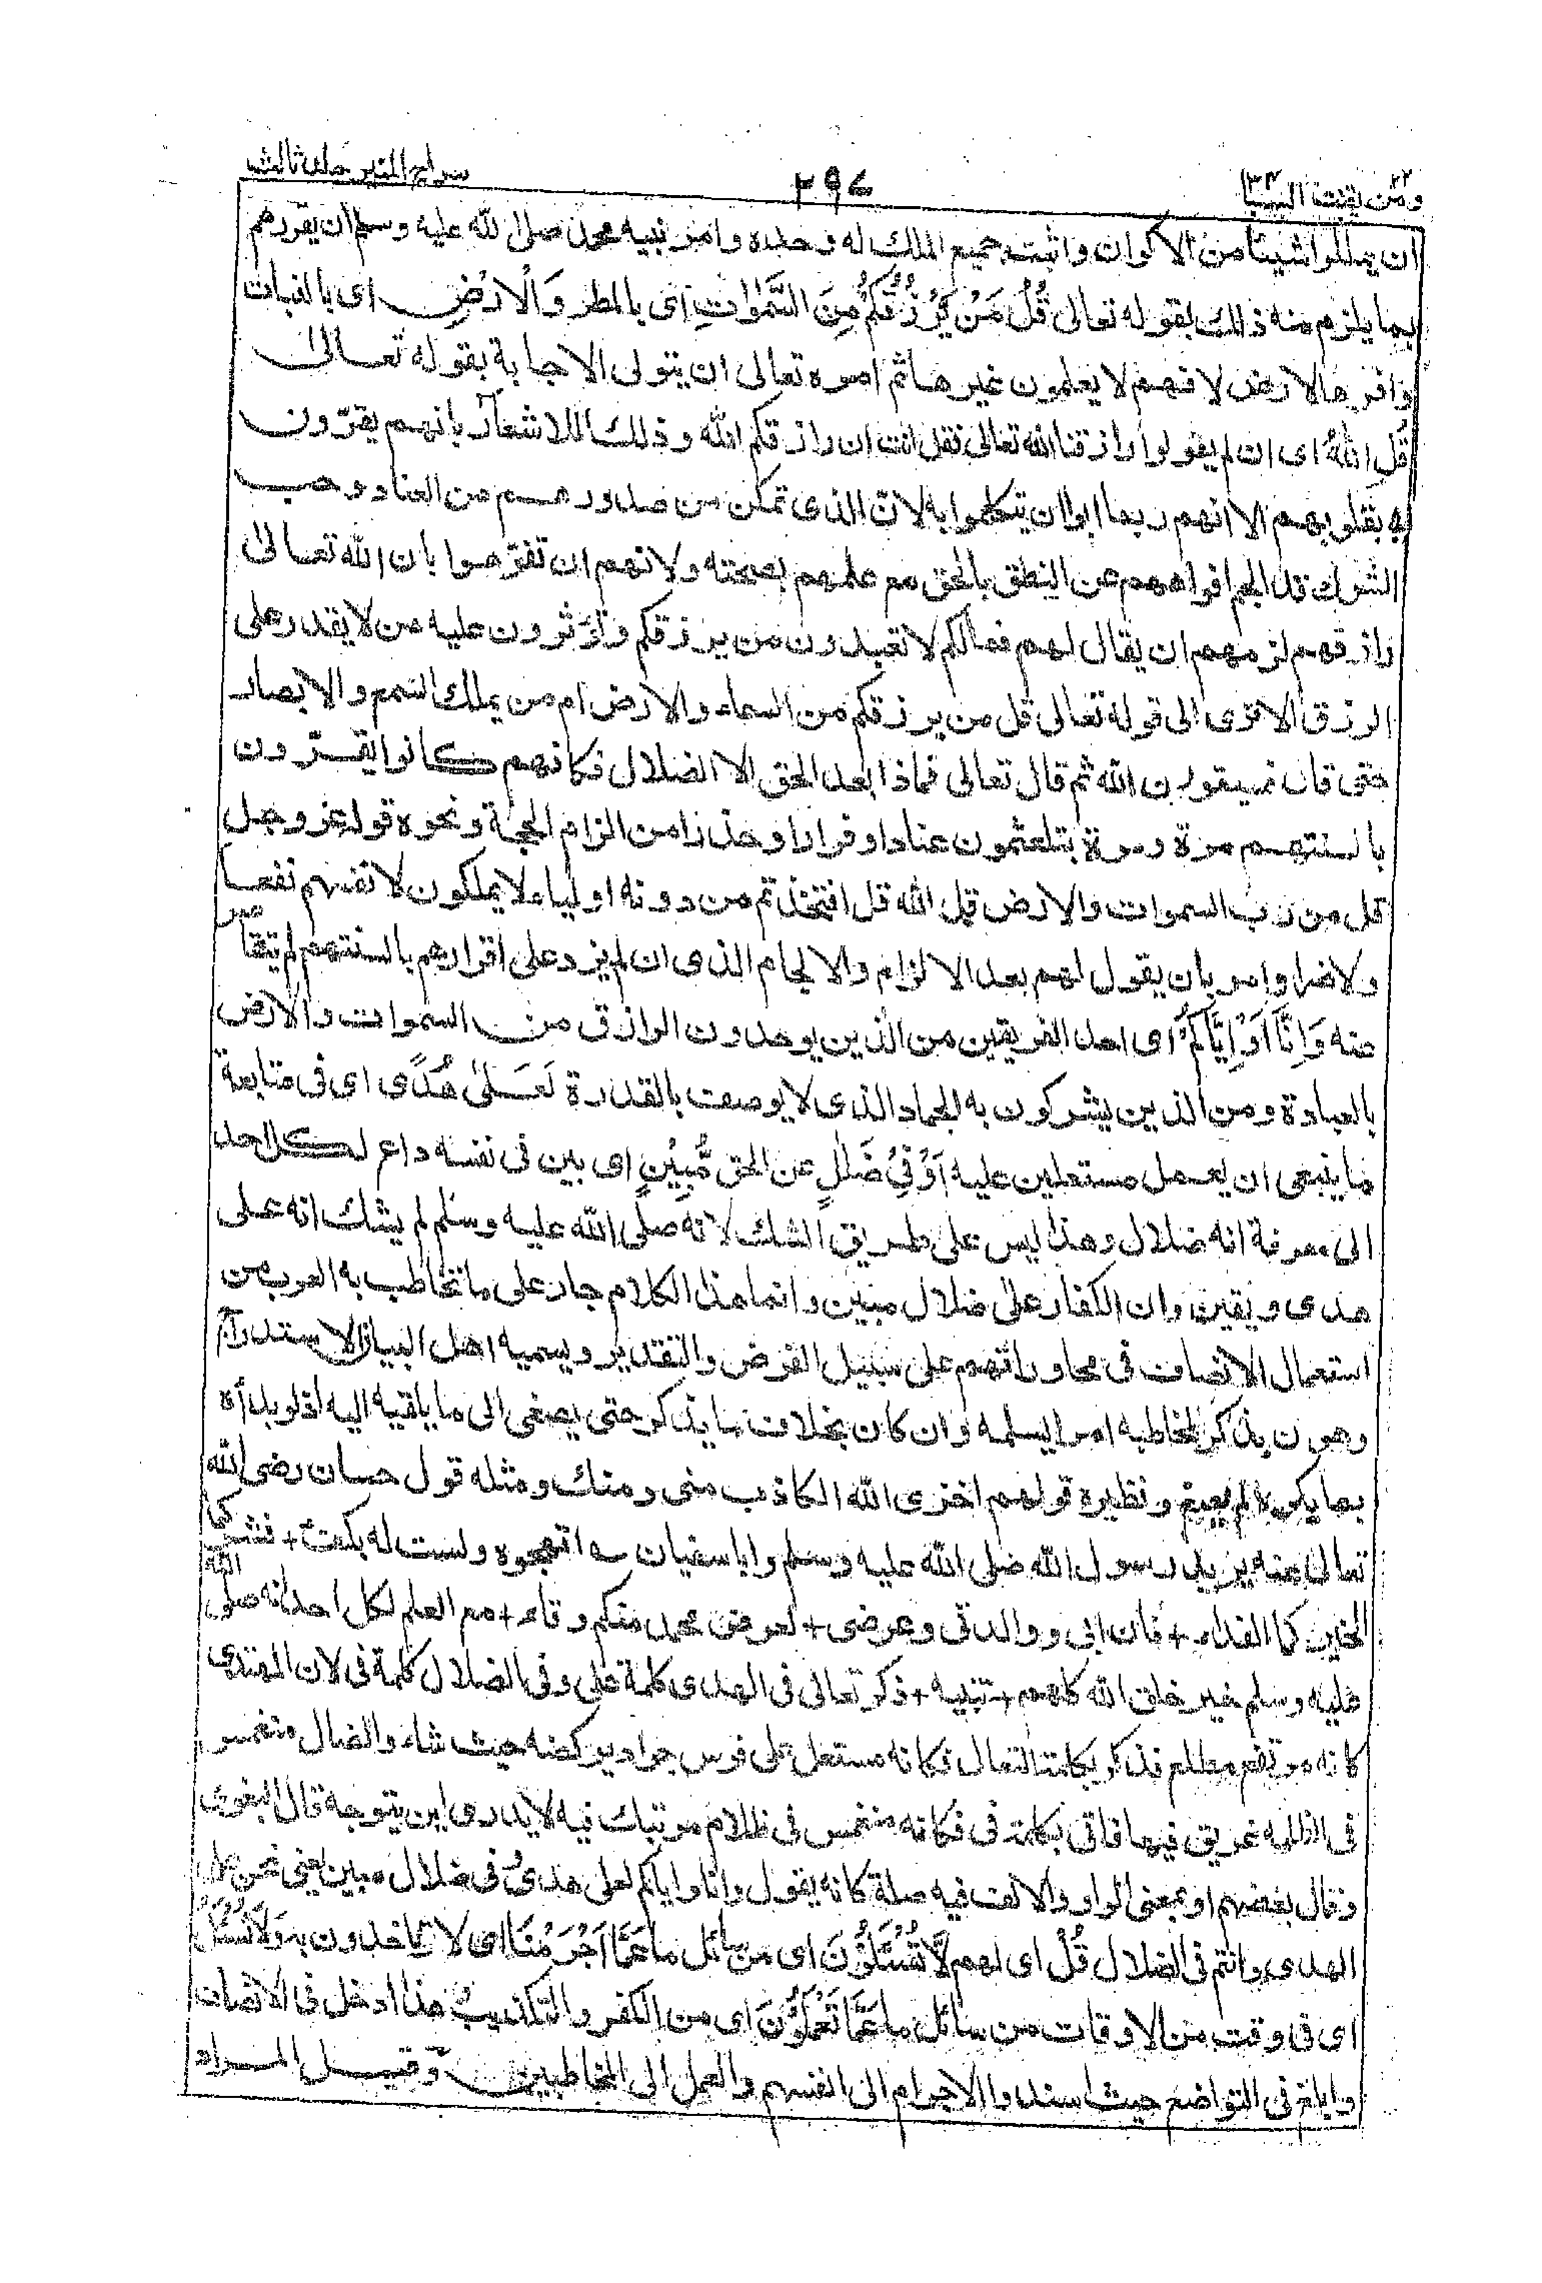 ومن يقنت ٢٢ السبا ٣٤ ٢٩٧ سراج المنير جلد ثالث
ان يملكوا شيئا من الاكوان واثبت جميع الملك له وحده وامر نبيه محمد صلى الله عليه وسلم ان يقررهم
بما يلزم منه ذلك بقوله تعالى قُلْ مَنْ يَرْزُقُكُمْ مِنَ السَّمٰوٰتِ اى بالمطر وَالْاَرْضِ اى بالنبات
وافرد الارض لانهم لا يعلمون غيرها ثم امره تعالى ان يتولى الاجابة بقوله تعالىٰ
قُلِ اللّٰهُ اى ان لم يقولوا رازقنا الله تعالى فقل انت ان رازقكم الله وذلك للاشعار بانهم يقرّون
به بقلوبهم الا انهم ربما ابوا ان يتكلموا به لانّ الذى تمكن من صدورهم من العناد وحب
الشرك قد الجم افواههم عن النطق بالحق مع علمهم بصحته ولانهم ان تفوّهوا بان الله تعالىٰ
رازقهم لزمهم ان يقال لهم فمالكم لا تعبدون من يرزقكم وتؤثرون عليه من لا يقدر على
الرزق الا ترى الى قوله تعالى قل من يرزقكم من السماء والارض ام من يملك السمع والابصار
حتى قال فسيقولون الله ثم قال تعالى فماذا بعد الحق الا الضلال فكانهم كانوا يقرّون
بالسنتهم مرة ومرة يتلعثمون عنادا وفرارا وحذرا من الزام الحجة ونحوه قوله عز وجل
قل من رب السموات والارض قل الله قل افتخذتم من دونه اولياء لا يملكون لانفسهم نفعا
ولا ضرا وامر بان يقول لهم بعد الالزام والالجام الذى ان لم يزد على اقرارهم بالسنتهم لم يتقاصر
عنه وَاِنَّا اَوْ اِيَّاكُمْ اى احد الفريقين من الذين يوحدون الرازق من السموات والارض
بالعبادة ومن الذين يشركون به الجماد الذى لا يوصف بالقدرة لَعَلىٰ هُدًى اى فى متابعة
ما ينبغى ان يعمل مستعلين عليه اَوْ فِيْ ضَلٰلٍ عن الحق مُّبِيْنٍ اى بين فى نفسه داع لكل احد
الى معرفة انه ضلال وهذا ليس على طريق الشك لانه صلى الله عليه وسلم لم يشك انه على
هدى ويقين وان الكفار على ضلال مبين وانما هذا الكلام جار على ما تخاطب به العرب من
استعمال الانصاف فى محاوراتهم على سبيل الفرض والتقدير ويسميه اهل البيان الاستدراج
وهو ان يذكر لمخاطبه امرا يسلمه وان كان بخلاف ما يذكر حتى يصغى الى ما يلقيه اليه اذ لو بدأه
بما يكره لم يصغ ونظيره قولهم اخزى الله الكاذب منى ومنك ومثله قول حسان رضى الله
تعالى عنه يريد رسول الله صلى الله عليه وسلم وابا سفيان ؎ اتهجوه ولست له بكفء + فشركما
لخيركما الفداء + فان ابى ووالدتى وعرضى + لعرض محمد منكم وقاء + مع العلم لكل احد انه صلى الله
عليه وسلم خير خلق الله كلهم + تنبيه + ذكر تعالى فى الهدى كلمة على وفى الضلال كلمة فى لان المهتدى
كانه مرتفع مطلع فذكر بكلمة التعالى فكانه مستعل على فرس جواد يركضه حيث شاء والضال منغمس
فى الظلمة غريق فيها فاتى بكلمة فى فكانه منغمس فى ظلام مرتبك فيه لا يدرى اين يتوجه قال البغوى
وقال بعضهم او بمعنى الواو والالف فيه صلة كانه يقول وانا واياكم لعلى هدى وفى ضلال مبين يعنى نحن على
الهدى وانتم فى الضلال قُلْ اى لهم لَّا تُسْئَلُوْنَ اى من سائل ما عَمَّا اَجْرَمْنَا اى لا تؤاخذون به وَلَا نُسْئَلُ
اى فى وقت من الاوقات من سائل ما عَمَّا تَعْمَلُوْنَ اى من الكفر والتكذيب هذا ادخل فى الانصاف
وابلغ فى التواضع حيث اسندوا الاجرام الى انفسهم والعمل الى المخاطبين وقيل المراد